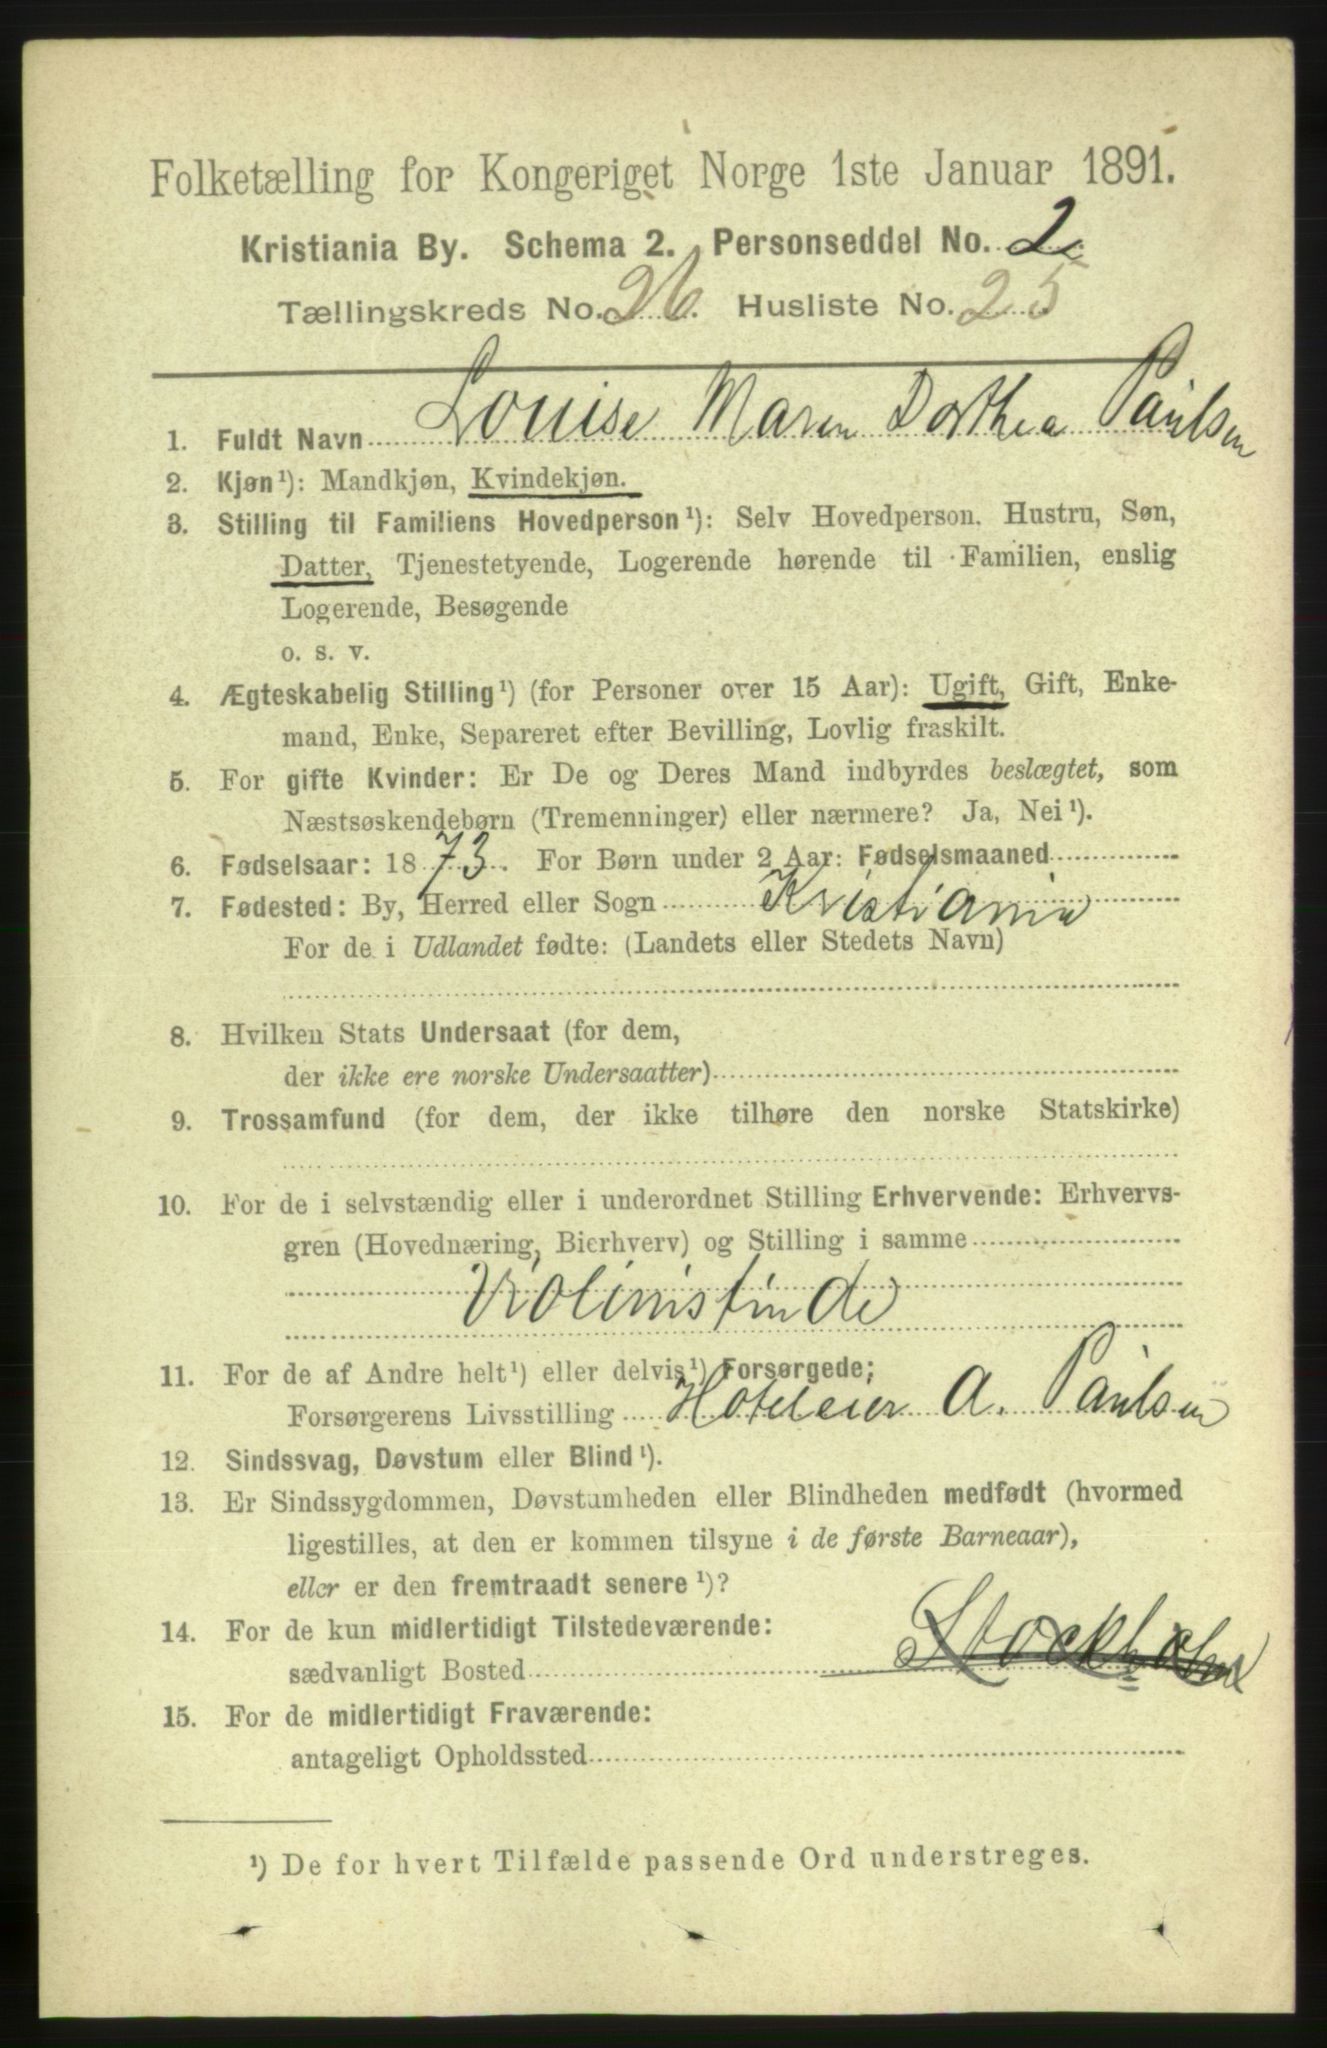 Folketælling for Kongeriget Norge 1ste Januar 1891.
Kristiania By. Schema 2. Personseddel No. 2.
Tællingskreds No. 26. Husliste No. 25
1. Fuldt Navn Louise Maren Dorthea Paulsen
2. Kjøn¹): Mandkjøn, Kvindekjøn.
3. Stilling til Familiens Hovedperson¹): Selv Hovedperson. Hustru, Søn,
Datter, Tjenestetyende, Logerende hørende til Familien, enslig
Logerende, Besøgende
o. s. v.
4. Ægteskabelig Stilling¹) (for Personer over 15 Aar): Ugift, Gift, Enke-
mand, Enke, Separeret efter Bevilling, Lovlig fraskilt.
5. For gifte Kvinder: Er De og Deres Mand indbyrdes beslægtet, som
Næstsøskendebørn (Tremenninger) eller nærmere? Ja, Nei¹).
6. Fødselsaar: 1873. For Børn under 2 Aar: Fødselsmaaned
7. Fødested: By, Herred eller Sogn Kristiania
For de i Udlandet fødte: (Landets eller Stedets Navn)
8. Hvilken Stats Undersaat (for dem,
der ikke ere norske Undersaatter)
9. Trossamfund (for dem, der ikke tilhøre den norske Statskirke)
10. For de i selvstændig eller i underordnet Stilling Erhvervende: Erhvervs-
gren (Hovednæring, Bierhverv) og Stilling i samme
Violinistinde
11. For de af Andre helt¹) eller delvis¹) Forsørgede;
Forsørgerens Livsstilling Hoteleier A. Paulsen
12. Sindssvag, Døvstum eller Blind¹).
13. Er Sindssygdommen, Døvstumheden eller Blindheden medfødt (hvormed
ligestilles, at den er kommen tilsyne i de første Barneaar),
eller er den fremtraadt senere¹)?
14. For de kun midlertidigt Tilstedeværende:
sædvanligt Bosted Stockholm
15. For de midlertidigt Fraværende:
antageligt Opholdssted
¹) De for hvert Tilfælde passende Ord understreges.